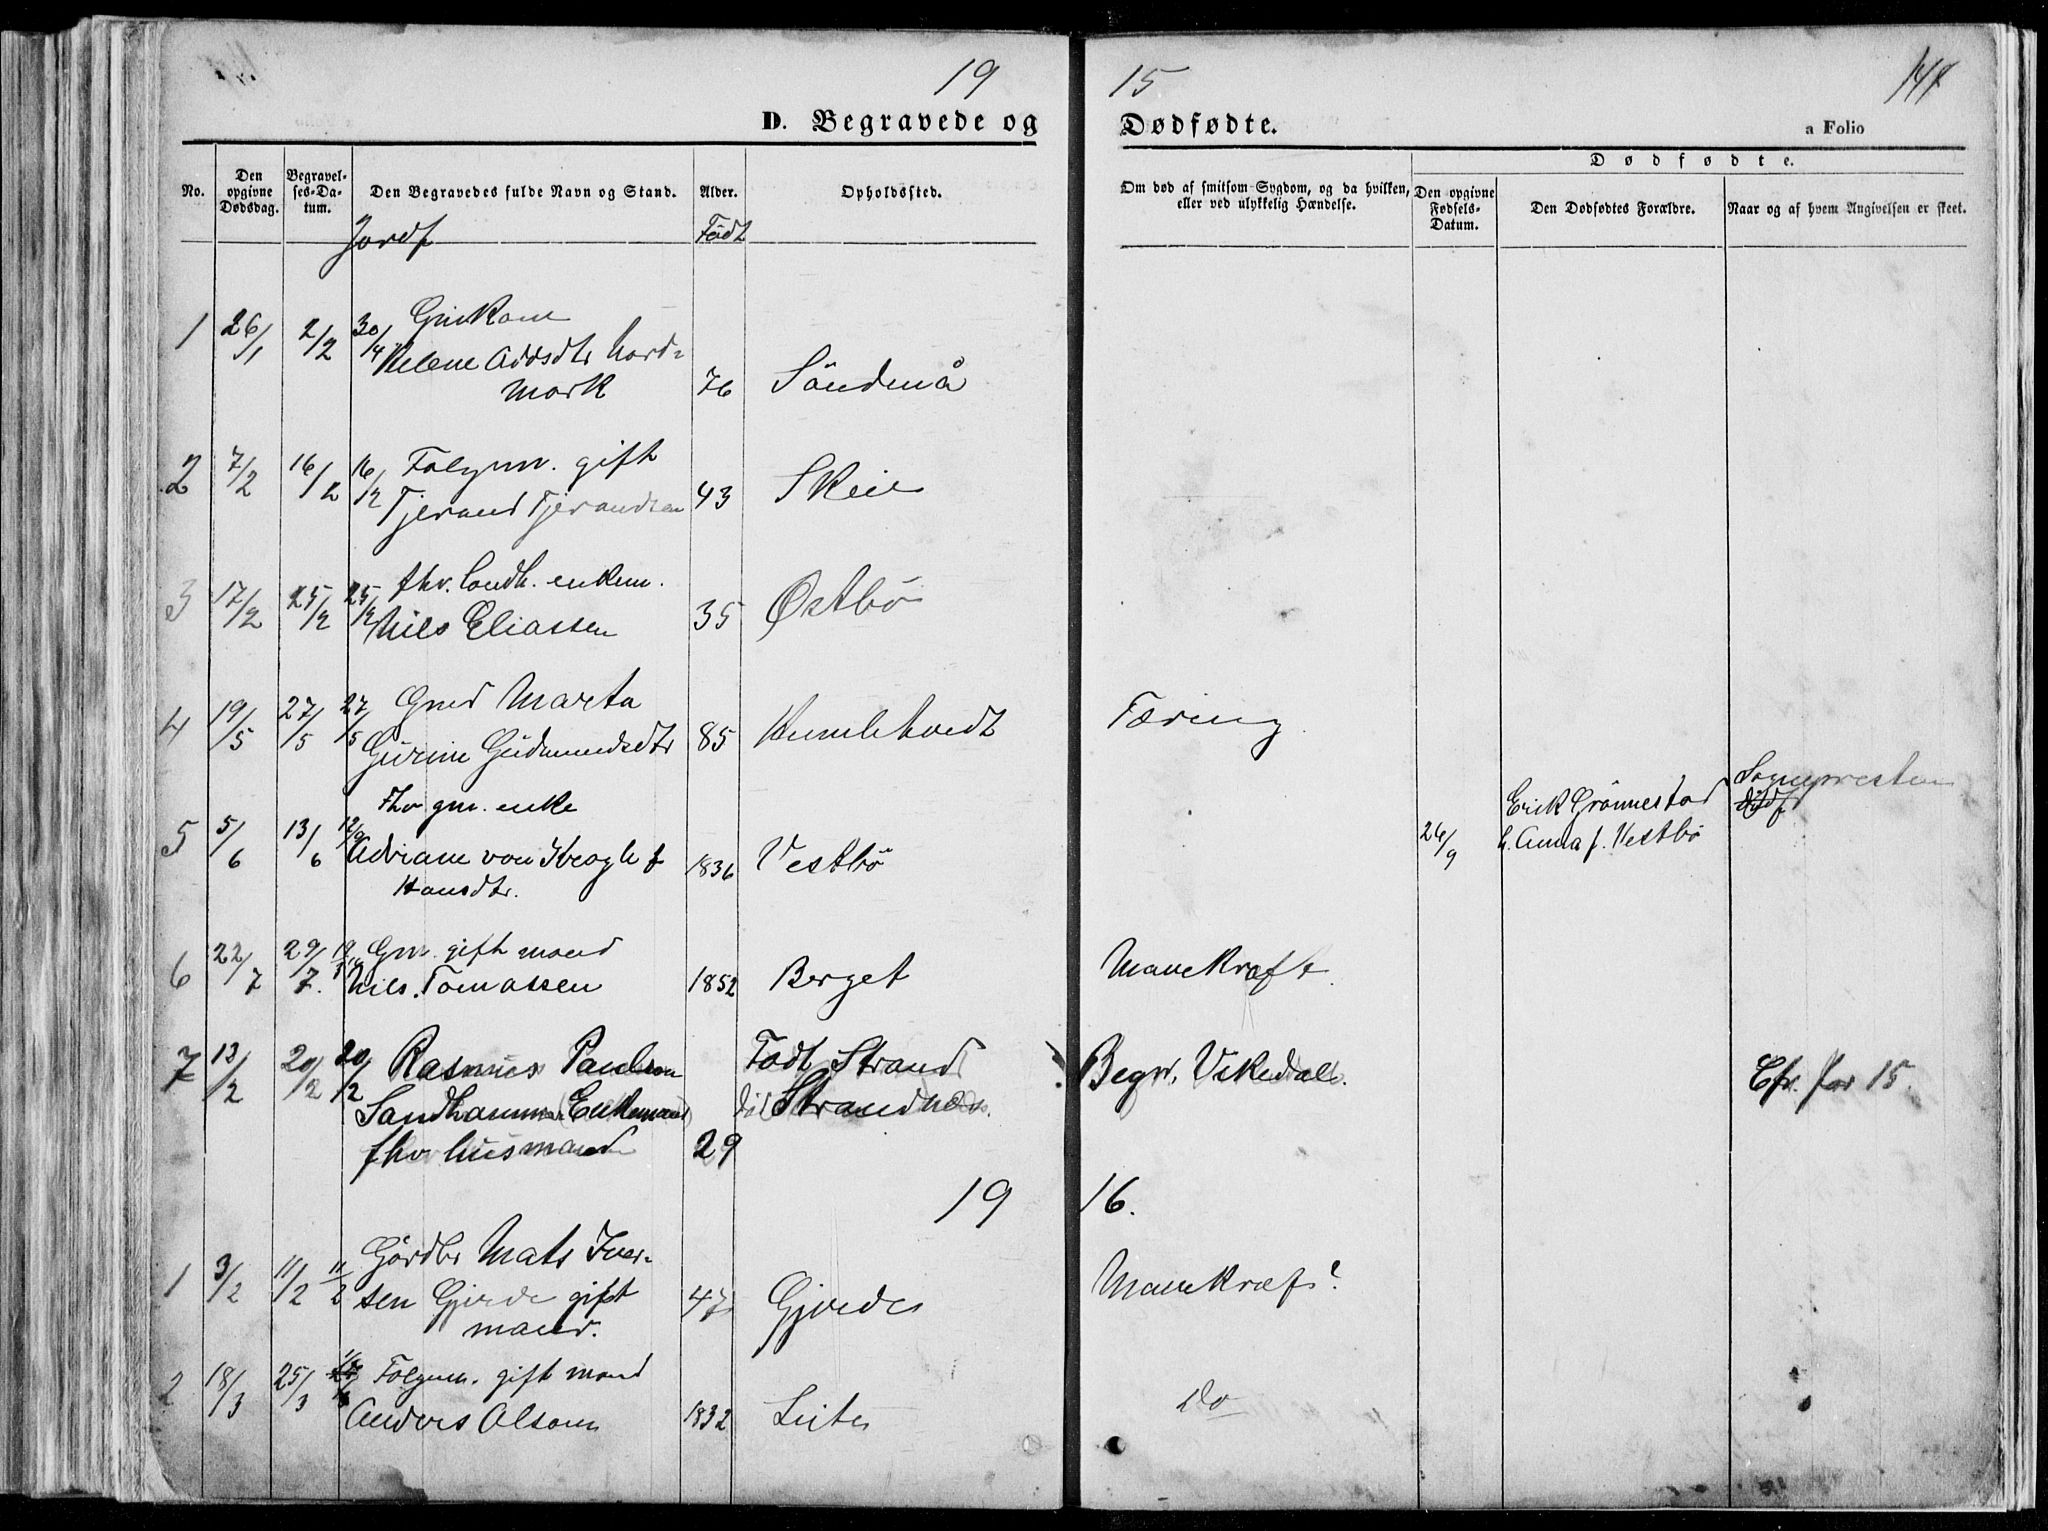 19 15 141
D. Begravede og Dødfødte.
a Folio
No.
Den opgivne Dødsdag.
Begravel-
ses-Da-
tum.
Den Begravedes fulde Navn og Stand.
Alder.
Opholdssted.
Om død af smitsom Sygdom, og da hvilken,
eller ved ulykkelig Hændelse.
Dødfødte.
Den opgivne
Fødsels-
Datum.
Den Dødfødtes Forældre.
Naar og af hvem Angivelsen er skeet.
Jordf Födt
1 26/1 2/2 30/4
Helene Addsdtr Nord-
mark 76 Söndenå
2 7/2 16/2 16/2 Folgm. gift
Tjerand Tjerandsen 43 Skeie
3 17/2 25/2 25/2 fhv. landh. enkem.
Nils Eliassen 35 Østbö
4 19/5 27/5 27/5 Marta
Gurine Gudmundsdtr 85 Humlekvedt Tæring
5 5/6 13/6 12/9 Fhv gm. enke
Adriane von Krogh f
Hansdtr. 1836 Vestbö
26/9 Erik Grönnestad
h. Anna f. Vestbö
Sognepresten
6 22/7 29/7. Gm. gift mand
Nils Tomassen 1852 Berget Mavekræft.
7 12/2 20/2 20/2 Rasmus Paulsen
Sandhammer (Enkemand)
fhv husmand 29
Födt Strand
död Strandnes.
Begr. Vikedal.
Cfr. for 15.
19 16.
1 3/2 11/2 11/2 Gårdbr Mats Iver-
sen Gjerde gift
mand. 47 Gjerde Mavekræft?
2 18/3 25/3 Folgm. gift mand
Anders Olsen 1832 Do